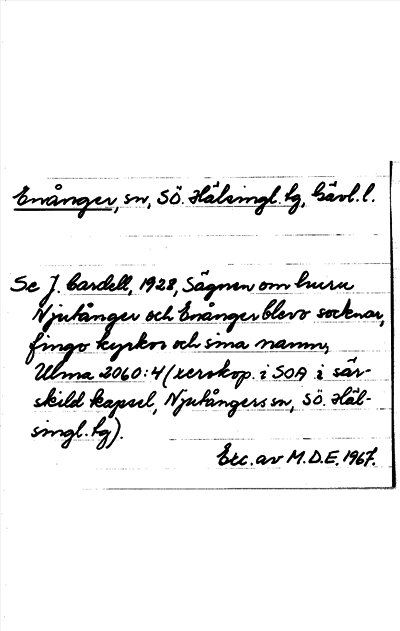 Enånger, sn, SÖ. Hälsingl. tg, Gävl. l.
Se J. Cardell, 1928, Sägnen om huru
Njutånger och Enånger blevo socknar,
fingo kyrkor och sina namn,
Ulma 2060:4 (xeroskop. i SOA i sär-
skild kapsel, Njutångers sn, SÖ. Häl-
singl. tg).
Exc. av M.D.E. 1967.